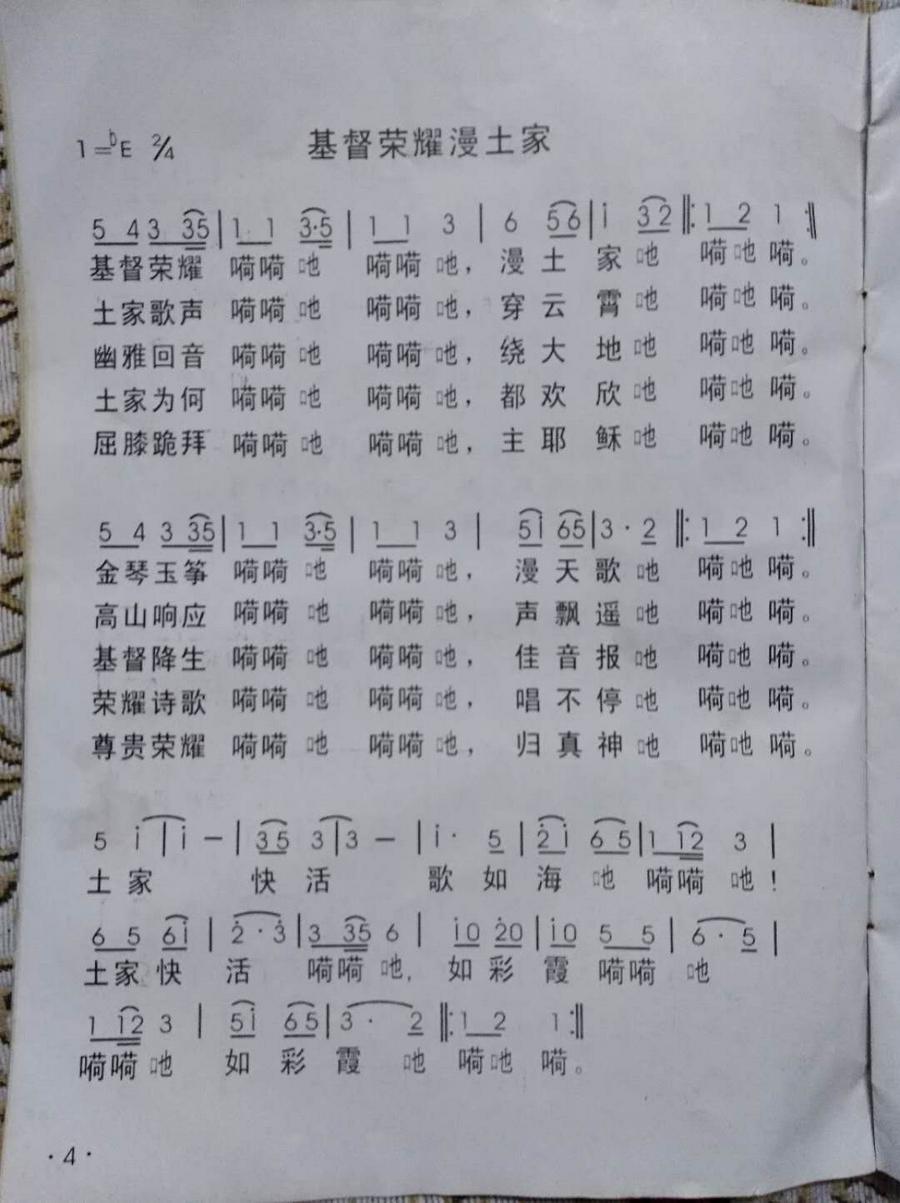 基督荣耀漫土家
1=♭E 2/4
5 4 3 35 | 1 1 3·5 | 1 1 3 | 6 56 | i 3 2 ‖: 1 2 1 :‖
基督荣耀 嗬嗬 吔 嗬嗬 吔，漫 土 家 吔 嗬吔 嗬。
土家歌声 嗬嗬 吔 嗬嗬 吔，穿 云 霄 吔 嗬吔 嗬。
幽雅回音 嗬嗬 吔 嗬嗬 吔，绕 大 地 吔 嗬吔 嗬。
土家为何 嗬嗬 吔 嗬嗬 吔，都 欢 欣 吔 嗬吔 嗬。
屈膝跪拜 嗬嗬 吔 嗬嗬 吔，主 耶 稣 吔 嗬吔 嗬。
5 4 3 35 | 1 1 3·5 | 1 1 3 | 5i 65 | 3 · 2 ‖: 1 2 1 :‖
金琴玉筝 嗬嗬 吔 嗬嗬 吔，漫 天 歌 吔 嗬吔 嗬。
高山响应 嗬嗬 吔 嗬嗬 吔，声 飘 遥 吔 嗬吔 嗬。
基督降生 嗬嗬 吔 嗬嗬 吔，佳 音 报 吔 嗬吔 嗬。
荣耀诗歌 嗬嗬 吔 嗬嗬 吔，唱 不 停 吔 嗬吔 嗬。
尊贵荣耀 嗬嗬 吔 嗬嗬 吔，归 真 神 吔 嗬吔 嗬。
5 i | i － | 35 3 | 3 － | i · 5 | 2i 65 | 1 12 3 |
土 家 快 活 歌 如 海 吔 嗬嗬 吔！
6 5 6i | 2 · 3 | 3 35 6 | i0 20 | i0 5 5 | 6 · 5 |
土家 快 活 嗬嗬 吔，如 彩 霞 嗬嗬 吔
1 12 3 | 5i 65 | 3 · 2 ‖: 1 2 1 :‖
嗬嗬 吔 如 彩 霞 吔 嗬吔 嗬。
· 4 ·